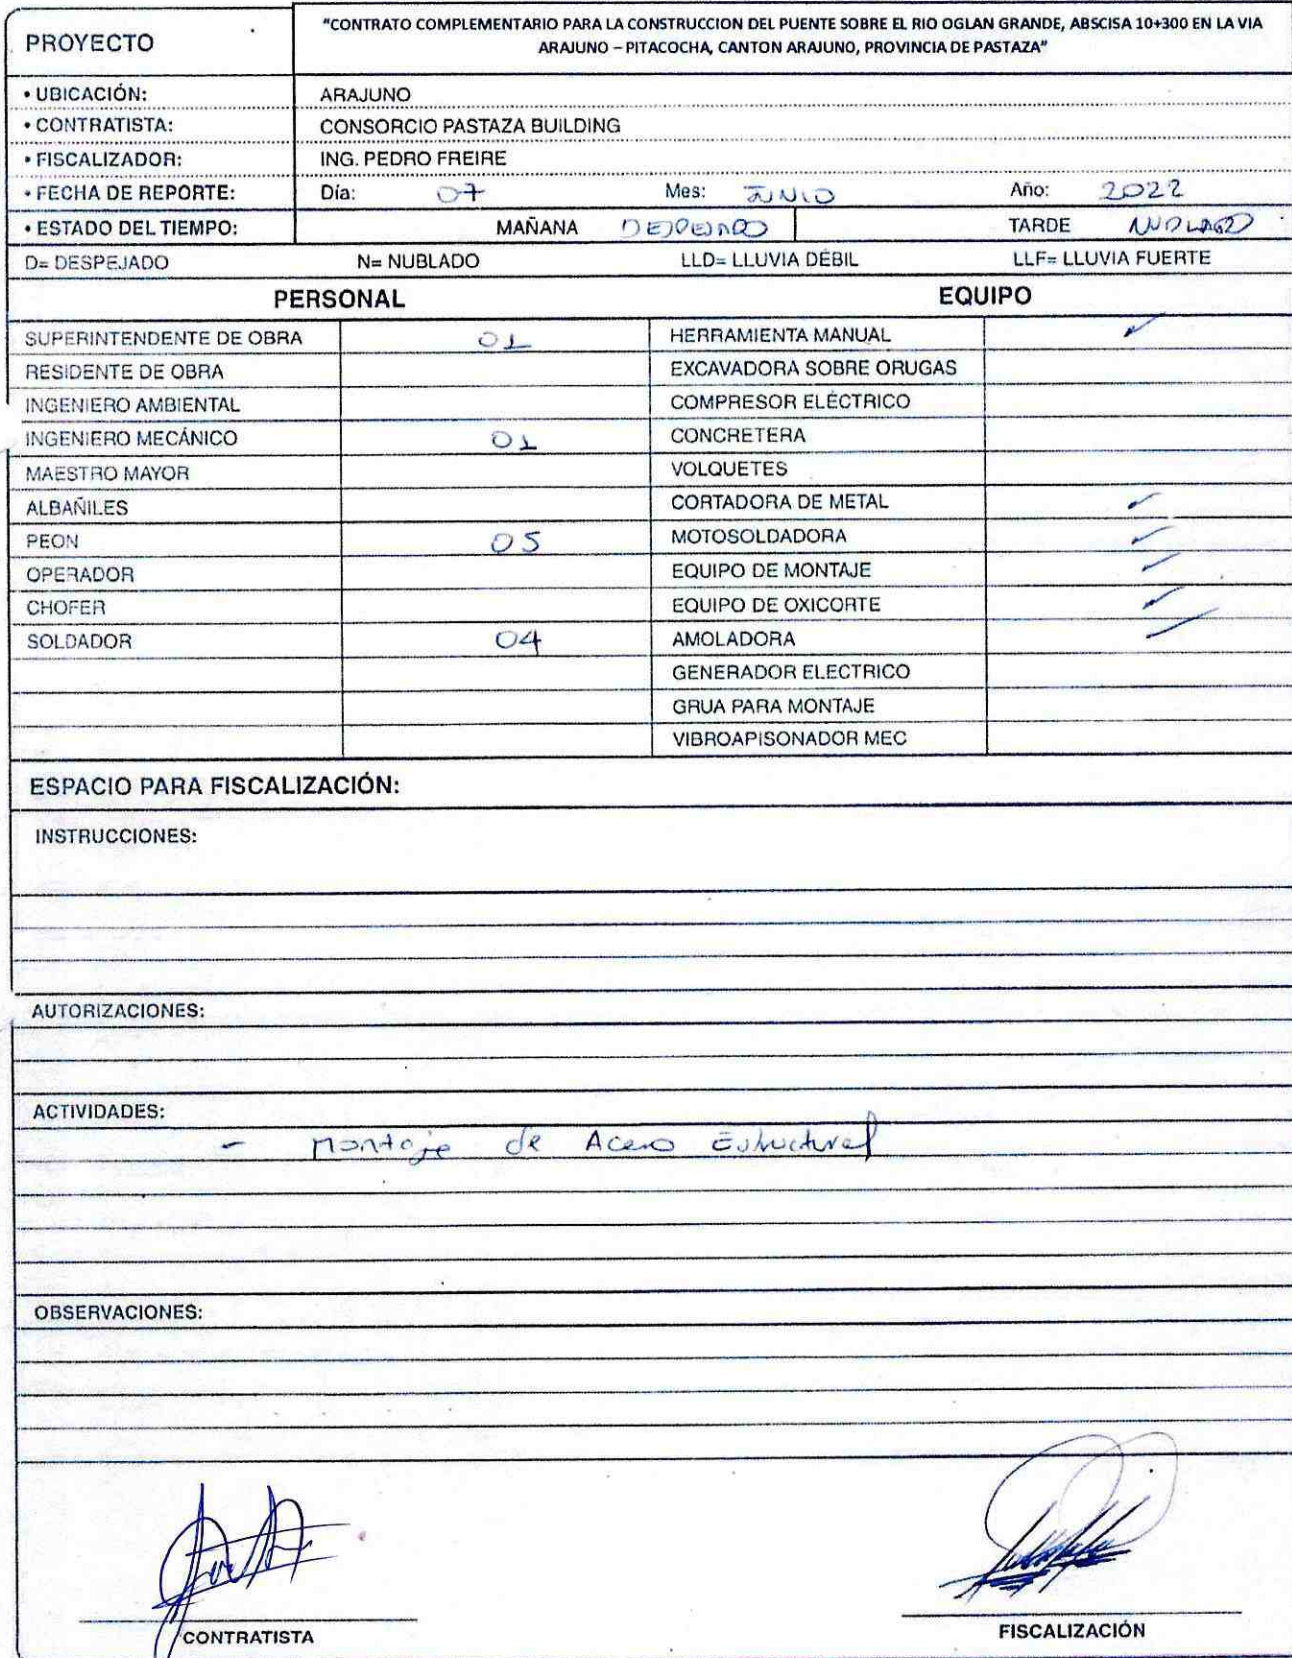 PROYECTO
"CONTRATO COMPLEMENTARIO PARA LA CONSTRUCCION DEL PUENTE SOBRE EL RIO OGLAN GRANDE, ABSCISA 10+300 EN LA VIA
ARAJUNO – PITACOCHA, CANTON ARAJUNO, PROVINCIA DE PASTAZA"
• UBICACIÓN: ARAJUNO
• CONTRATISTA: CONSORCIO PASTAZA BUILDING
• FISCALIZADOR: ING. PEDRO FREIRE
• FECHA DE REPORTE: Día: 07 Mes: JUNIO Año: 2022
• ESTADO DEL TIEMPO: MAÑANA DESPEJADO TARDE NUBLADO
D= DESPEJADO N= NUBLADO LLD= LLUVIA DÉBIL LLF= LLUVIA FUERTE
PERSONAL EQUIPO
SUPERINTENDENTE DE OBRA 01 HERRAMIENTA MANUAL ✓
RESIDENTE DE OBRA EXCAVADORA SOBRE ORUGAS
INGENIERO AMBIENTAL COMPRESOR ELÉCTRICO
INGENIERO MECÁNICO 01 CONCRETERA
MAESTRO MAYOR VOLQUETES
ALBAÑILES CORTADORA DE METAL ✓
PEON 05 MOTOSOLDADORA ✓
OPERADOR EQUIPO DE MONTAJE ✓
CHOFER EQUIPO DE OXICORTE ✓
SOLDADOR 04 AMOLADORA ✓
GENERADOR ELECTRICO
GRUA PARA MONTAJE
VIBROAPISONADOR MEC
ESPACIO PARA FISCALIZACIÓN:
INSTRUCCIONES:
AUTORIZACIONES:
ACTIVIDADES:
- Montaje de Acero Estructural
OBSERVACIONES:
CONTRATISTA FISCALIZACIÓN